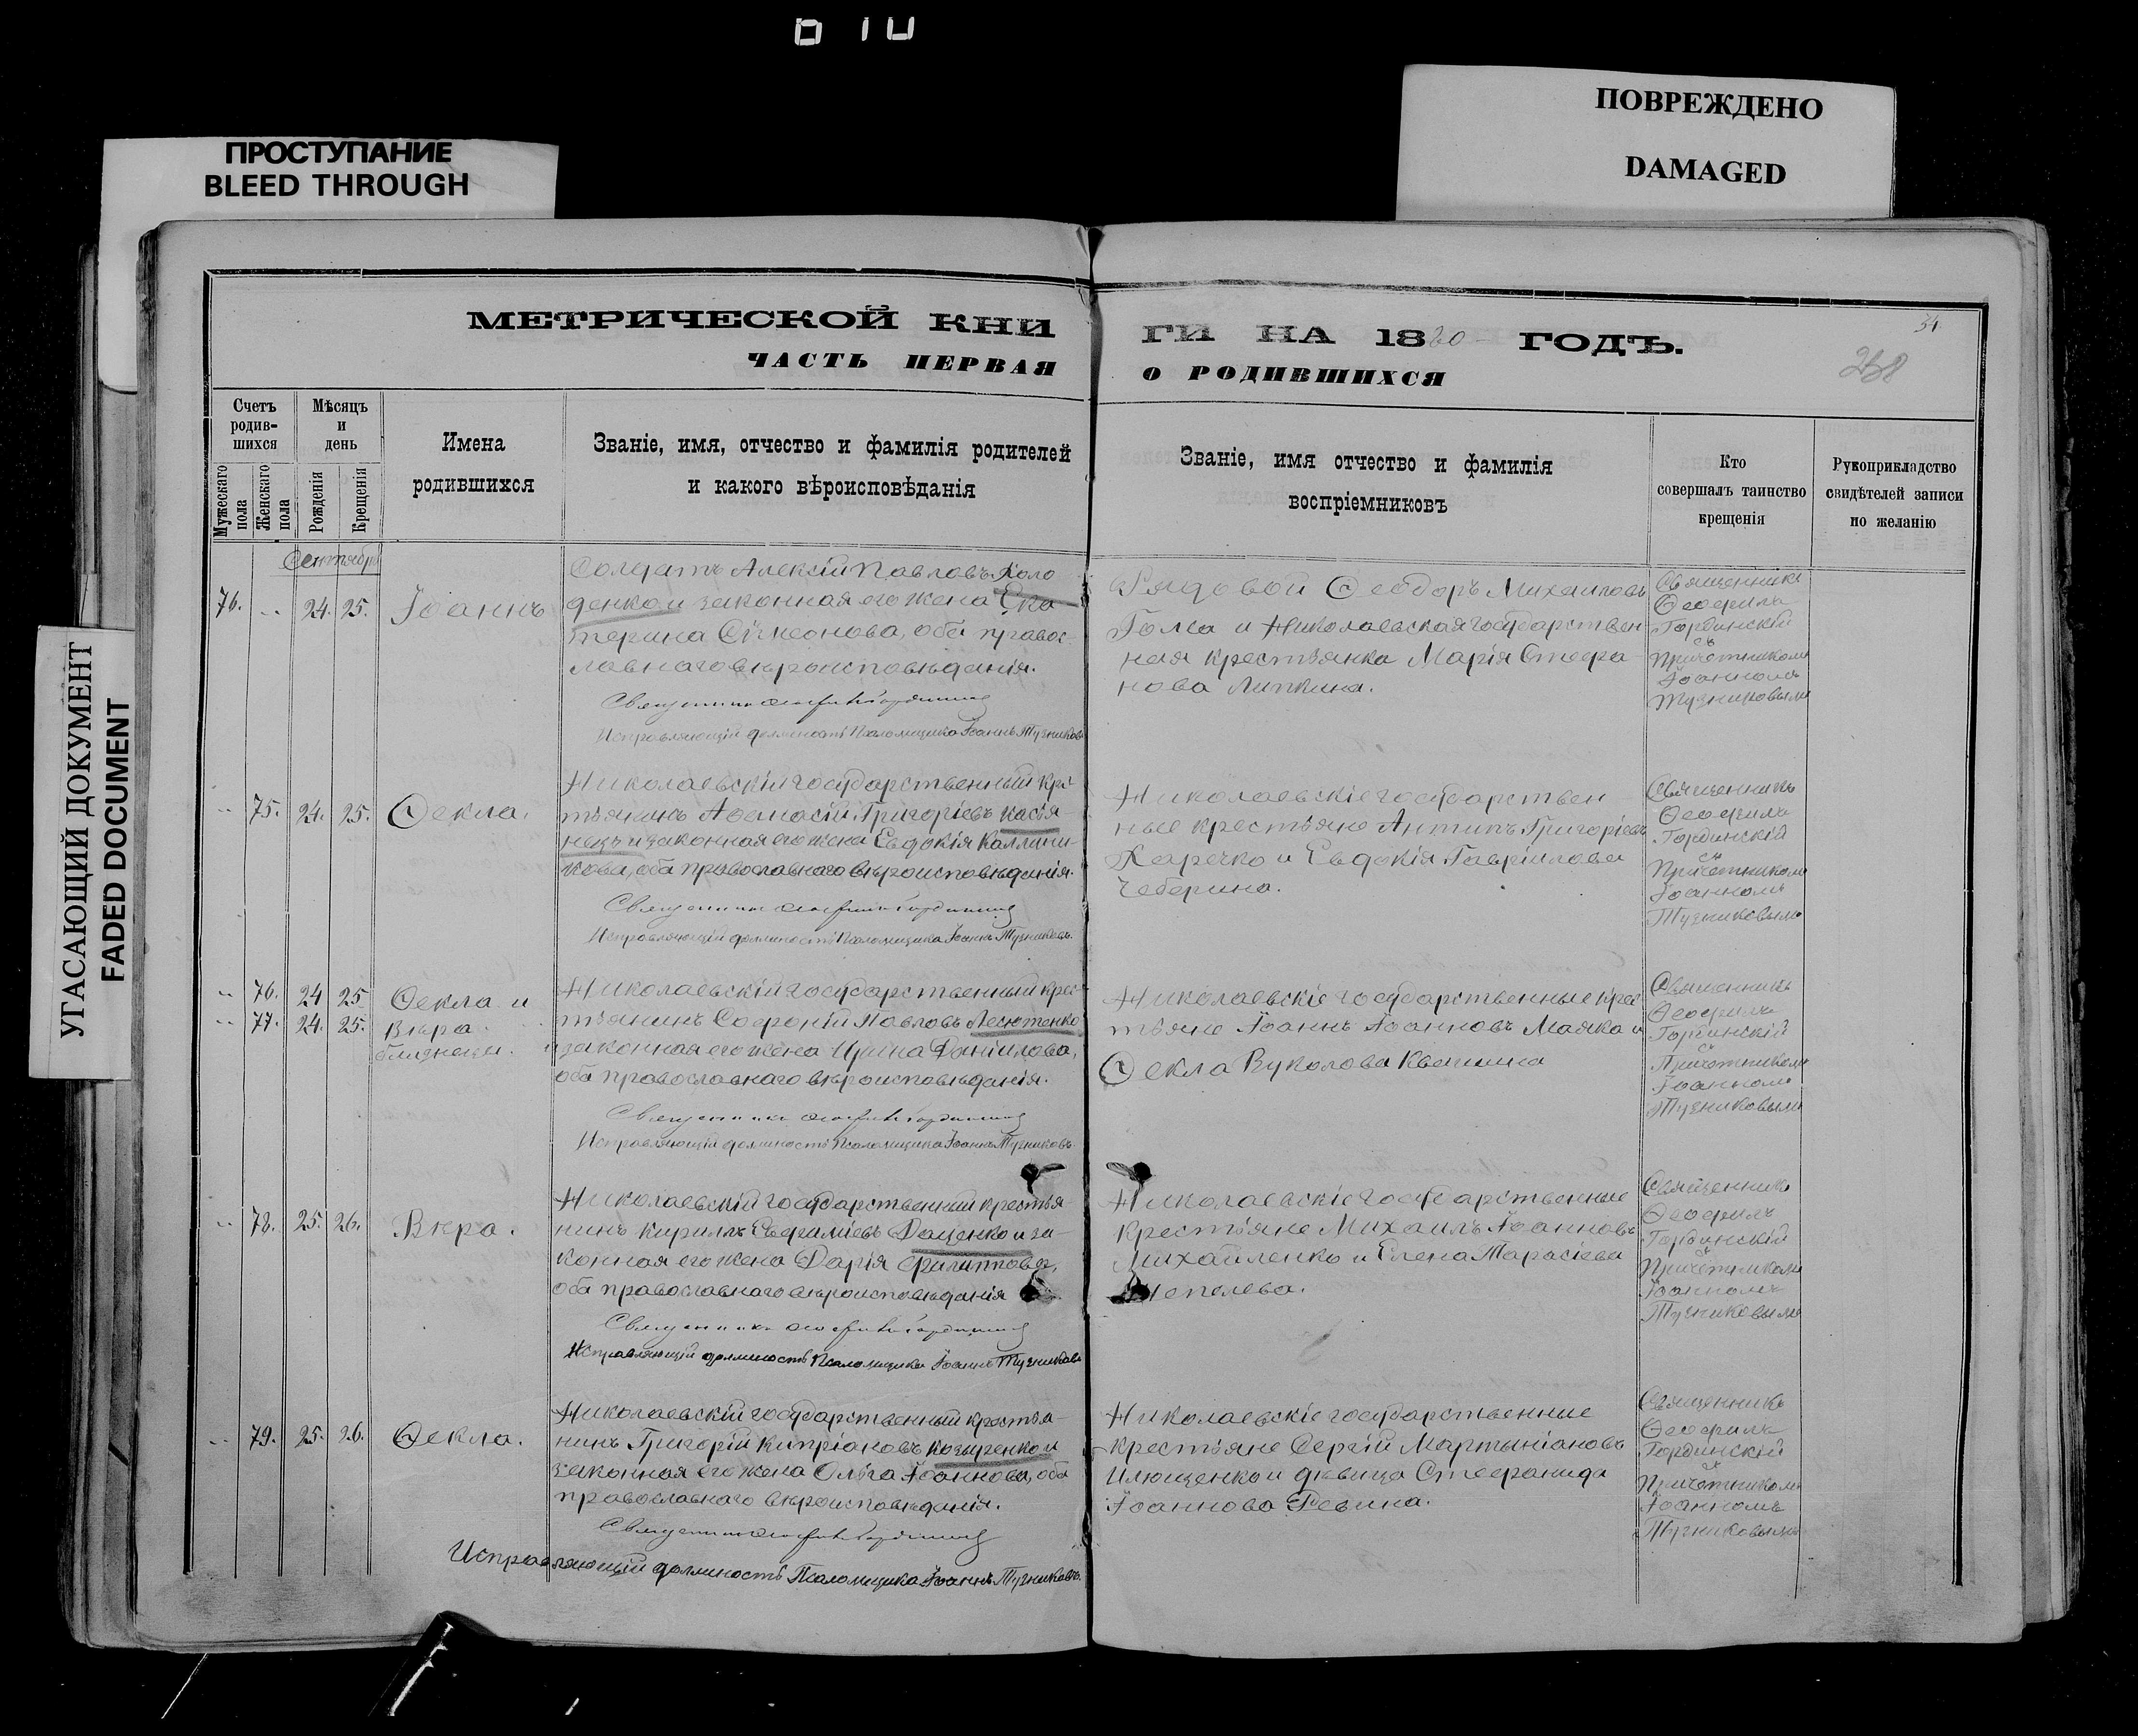 ПРОСТУПАНИЕ
BLEED THROUGH
ПОВРЕЖДЕНО
DAMAGED
УГАСАЮЩИЙ ДОКУМЕНТ
FADED DOCUMENT
МЕТРИЧЕСКОЙ КНИ
ГИ НА 18 ГОДЪ.
ЧАСТЬ ПЕРВАЯ
О РОДИВШИХСЯ
34
Счетъ
родив-
шихся
Мужескаго
пола
Женскаго
пола
Мѣсяцъ
и
день
Рожденія
Крещенія
Имена
родившихся
Званіе, имя, отчество и фамилія родителей
и какого вѣроисповѣданія
Званіе, имя отчество и фамилія
воспріемниковъ
Кто
совершалъ таинство
крещенія
Рукоприкладство
свидѣтелей записи
по желанію
Сентября
76. 24. 25. Іоаннъ
Солдатъ Алексій Павловъ Коло
денко и законная его жена Ека
терина Сѵмеонова, оба правос
лавнаго вѣроисповѣданія.
Исправляющій должность Псаломщика Іоаннъ Тузниковъ
Рядовой Ѳеодоръ Михаиловъ
Голка и Николаевская государствен
ная крестьянка Марія Стефа
нова Липкина.
Священникъ
Ѳеофилъ
Гординскій
съ
Причетникомъ
Іоанномъ
Тузниковымъ
75. 24. 25. Ѳекла.
Николаевскій государственный крес
тьянинъ Аѳанасій Григоріевъ Касья
ненъ и законная его жена Евдокія Каллини
кова, оба православнаго вѣроисповѣданія.
Исправляющій должность Псаломщика Іоаннъ Тузниковъ.
Николаевскіе государствен
ные крестьяне Антипъ Григоріевъ
Каречко и Евдокія Гавріилова
Чеберина.
Священникъ
Ѳеофилъ
Гординскій
съ
Причетникомъ
Іоанномъ
Тузниковымъ
76. 24 25 Ѳекла и
77. 24. 25. Вѣра.
близнецы.
Николаевскій государственный крес
тьянинъ Софроній Павловъ Лесютенко
и законная его жена Ирина Даніилова,
оба православнаго вѣроисповѣданія.
Исправляющій должность Псаломщика Іоаннъ Тузниковъ.
Николаевскіе государственные крес
тьяне Іоаннъ Іоанновъ Маяка и
Ѳекла Вуколова Квашина
Священникъ
Ѳеофилъ
Гординскій
съ
Причетникомъ
Іоанномъ
Тузниковымъ
78. 25. 26. Вѣра.
Николаевскій государственный крестья
нинъ Кириллъ Евфиміевъ Доценко и за-
конная его жена Дарія Филиппова,
оба православнаго вѣроисповѣданія
Исправляющій должность Псаломщика Іоаннъ Тузниковъ
Николаевскіе государственные
крестьяне Михаилъ Іоанновъ
Михайленко и Елена Тарасіева
Шепелева.
Священникъ
Ѳеофилъ
Гординскій
съ
Причетникомъ
Іоанномъ
Тузниковымъ
79. 25. 26. Ѳекла.
Николаевскій государственный крестья-
нинъ Григорій Кипріановъ Козыренко и
законная его жена Ольга Іоаннова, оба
православнаго вѣроисповѣданія.
Исправляющій должность Псаломщика Іоаннъ Тузниковъ.
Николаевскіе государственные
крестьяне Сергій Мартиніановъ
Илющенко и дѣвица Стефанида
Іоаннова Ревина.
Священникъ
Ѳеофилъ
Гординскій
съ
Причетникомъ
Іоанномъ
Тузниковымъ